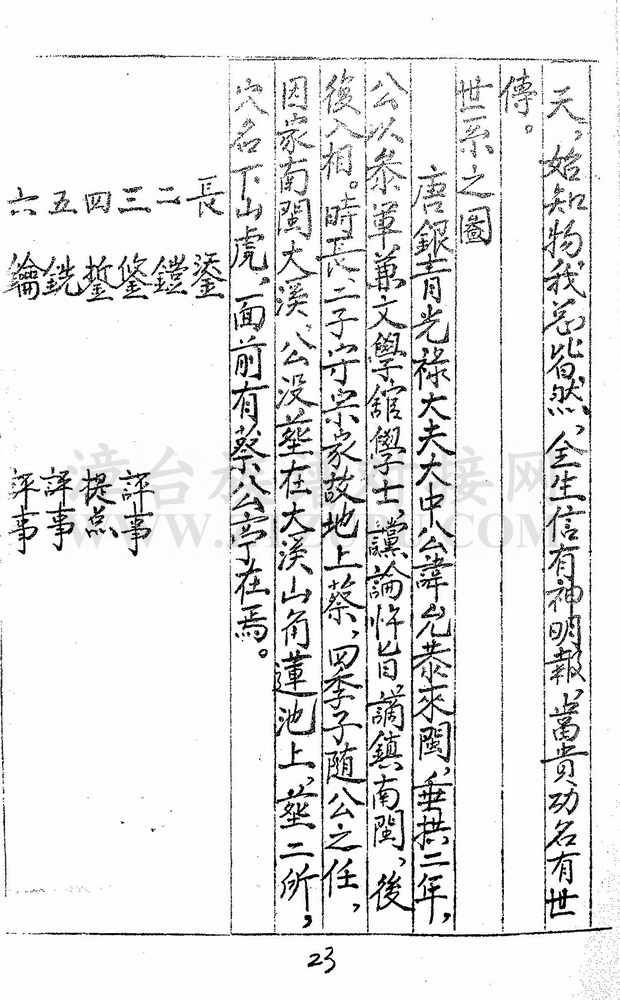 天，始知物我总皆然，全生信有神明報，當貴功名有世
傳。
世系之圖
唐銀青光祿大夫大中公諱允恭來閩，垂拱二年，
公以參軍兼文學舘學士，讜論忤旨，謫鎮南閩，後
復入相。時長、二子守宗家故地上蔡，四季子随公之任，
因家南閩大溪，公没塟在大溪山角蓮池上，塟二所，
穴名下山虎，面前有蔡公亭在焉。
長 鎏
二 鎧
三 鋚 評事
四 鏨 提点
五 銑 評事
六 鑰 評事
漳台族譜对接网
23